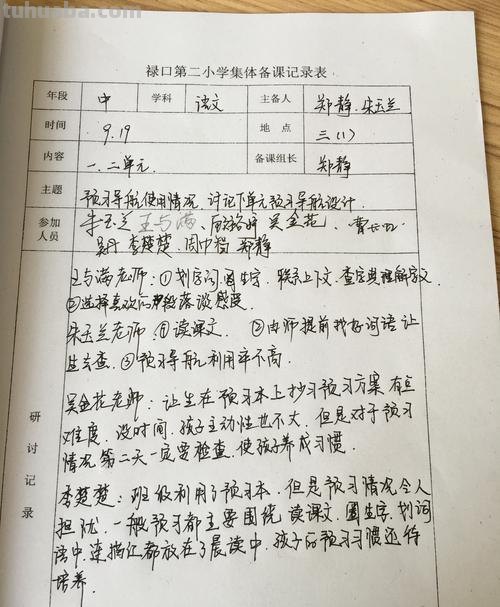 tuhuaba.com
禄口第二小学集体备课记录表
年段 中 学科 语文 主备人 郑静、朱玉兰
时间 9.19 地点 三(1)
内容 一、二单元 备课组长 郑静
主题 预习导航使用情况,讨论下单元预习导航设计.
参加人员 朱玉兰 王与满、吴金花、
李楚楚、郑静
研讨记录
王与满老师:①划字词,圈生字,联系上下文,查字典理解字义
②选择喜欢的段落谈感受
朱玉兰老师 ①读课文. ②由师提前找好词语让
生去查. ③预习导航利用率不高.
吴金花老师:让生在预习本上抄习预习方案有点
难度.没时间.孩子主动性也不大.但是对于预习
情况第二天一定要检查,使孩子养成习惯.
李楚楚:班级利用了预习本.但是预习情况令人
担忧.一般预习都主要围绕读课文.圈生字.划词
语中.连摘记都放在了晨读中.孩子的预习习惯还待
培养.